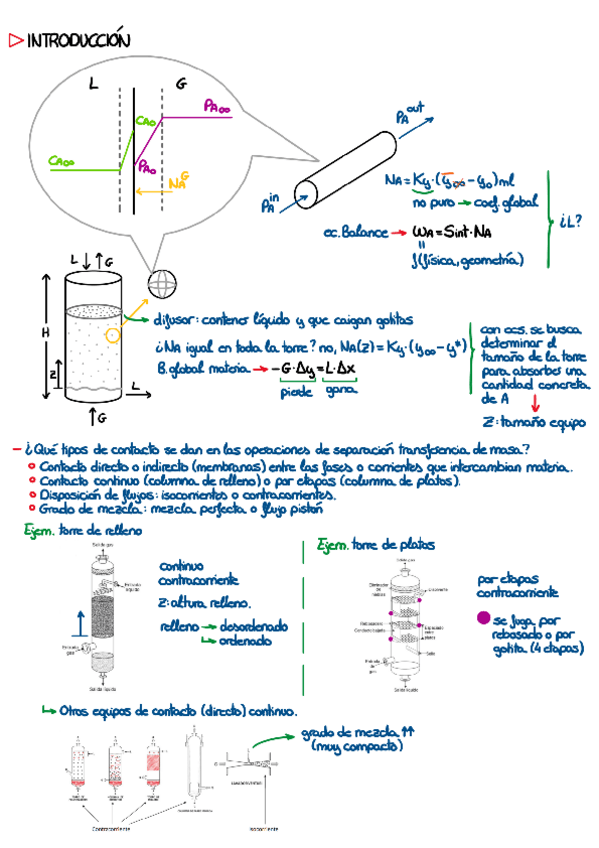 ▷ INTRODUCCIÓN
L G
PA∞
CA0
CA∞
PA0
NA^G
PA^out
PA^in
NA = Ky·(y∞ - y0)ml
no puro → coef. global
ec. Balance → WA = Sint·NA
=
f(física, geometría)
¿L?
L ↓ ↑ G
H
z
L
↑ G
difusor: contener líquido y que caigan gotitas
¿NA igual en toda la torre? no, NA(z) = Ky·(y∞ - y*)
B. global materia → -G·Δy = L·Δx
pierde gana
con ecs. se busca
determinar el
tamaño de la torre
para absorber una
cantidad concreta
de A
Z: tamaño equipo
- ¿Qué tipos de contacto se dan en las operaciones de separación transferencia de masa?
Contacto directo o indirecto (membranas) entre las fases o corrientes que intercambian materia.
Contacto continuo (columna de relleno) o por etapas (columna de platos).
Disposición de flujos: isocorrientes o contracorrientes.
Grado de mezcla: mezcla perfecta o flujo pistón
Ejem. torre de relleno
Salida gas
Entrada líquido
Entrada gas
Salida líquido
continuo
contracorriente
Z: altura relleno.
relleno → desordenado
↳ ordenado
Ejem. torre de platos
Salida gas
Entrada de gas
Salida líquido
por etapas
contracorriente
se fuga por
rebosado o por
gotita (4 etapas)
↳ Otros equipos de contacto (directo) continuo.
grado de mezcla ↑↑
(muy compacto)
Contracorriente
Isocorriente